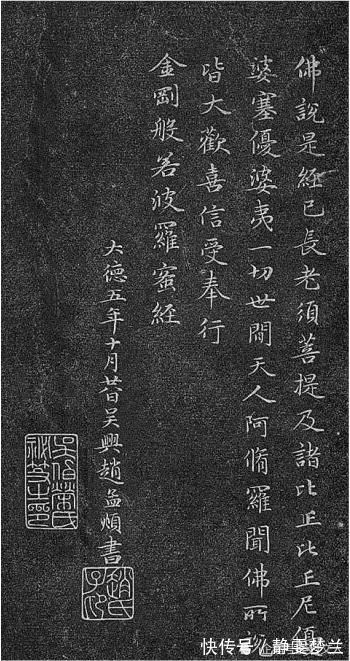 佛說是經已長老須菩提及諸比丘比丘尼優
婆塞優婆夷一切世間天人阿脩羅聞佛所說
皆大歡喜信受奉行
金剛般若波羅蜜經
大德五年十月廿日吳興趙孟頫書
趙氏子昂
吳伯榮氏祕笈之印
快传号/静雯梦兰